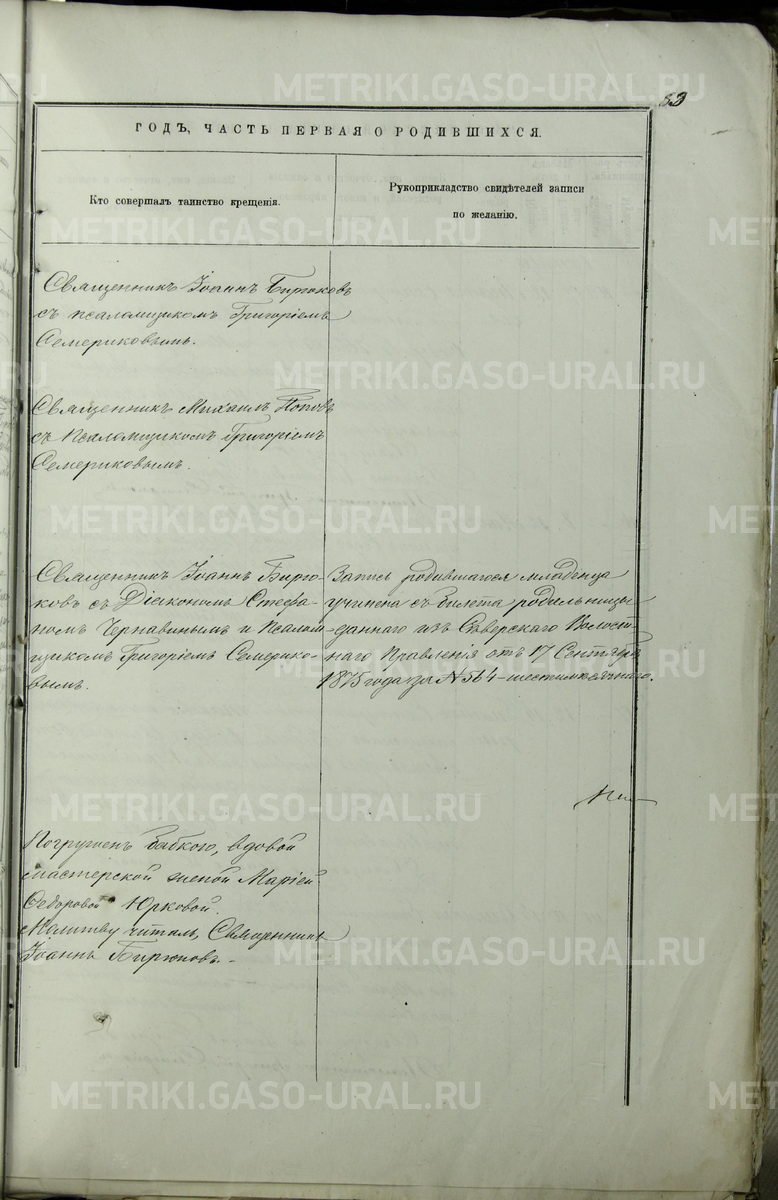 53
ГОДЪ, ЧАСТЬ ПЕРВАЯ О РОДИВШИХСЯ.
Кто совершалъ таинство крещенія.
Рукоприкладство свидѣтелей записи
по желанію.
Священникъ Іоаннъ Бирюковъ
съ псаломщикомъ Григоріемъ
Семериковымъ.
Священникъ Михаилъ Поповъ
съ Псаломщикомъ Григоріемъ
Семериковымъ.
Священникъ Іоаннъ Бирю-
ковъ съ Діакономъ Стефа-
номъ Чернавинымъ и Псалом-
щикомъ Григоріемъ Семерико-
вымъ.
Запись родившагося младенца
учинена съ билета родильницы
даннаго изъ Сѣверскаго Волост-
наго Правленія отъ 17 Сентября
1875 года за № 564 - шестимѣсячнаго.
Погруженъ бабкою, вдовой
мастерской женой Маріей
Ѳедоровой Юрковой.
Молитву читалъ, Священникъ
Іоаннъ Бирюковъ. -
METRIKI.GASO-URAL.RU